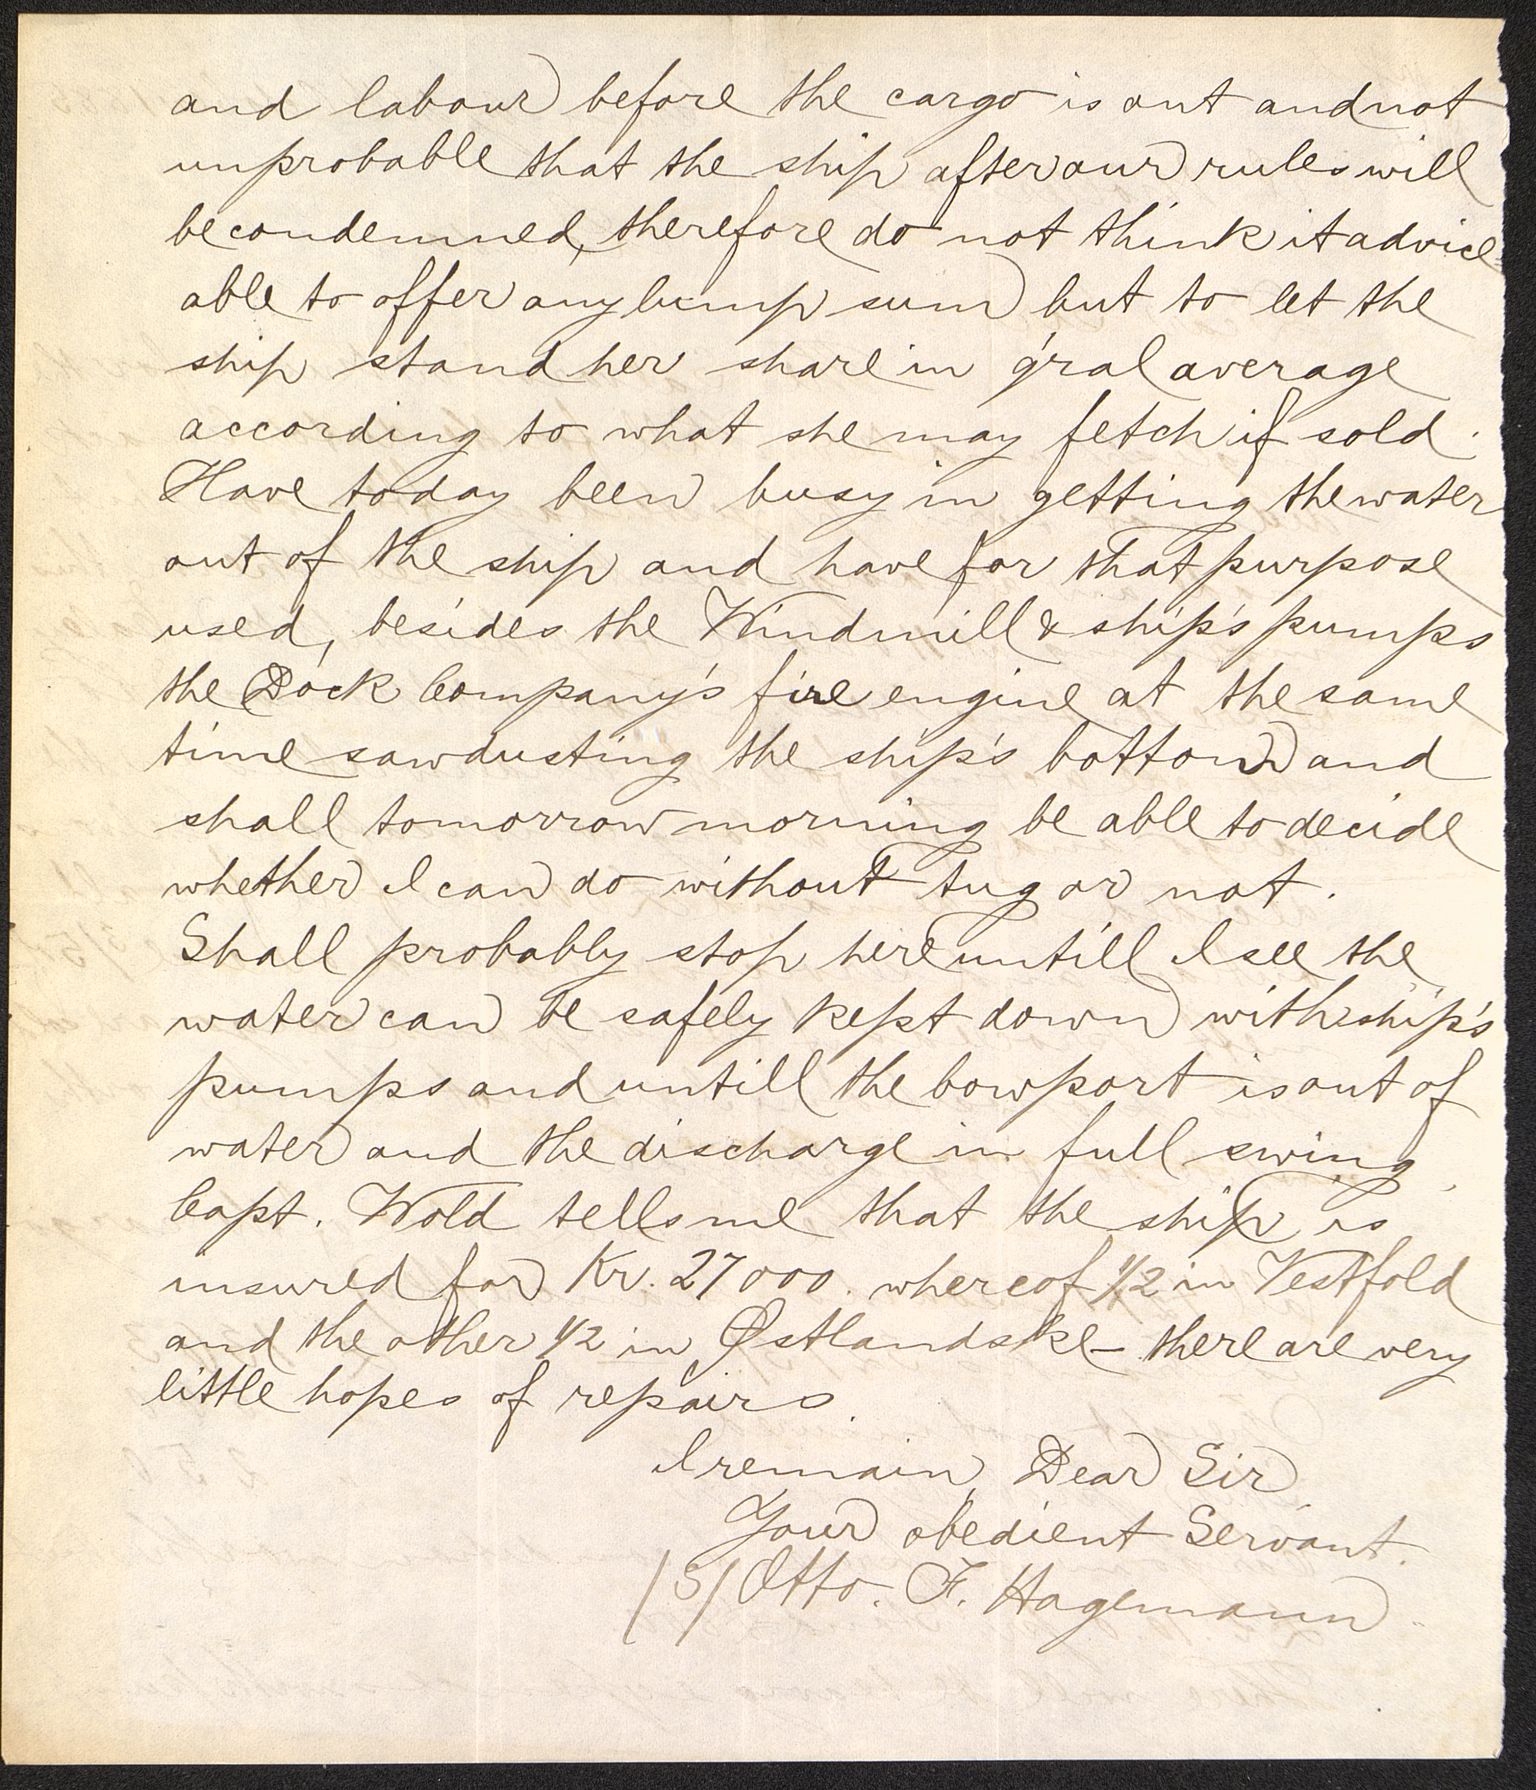 and labour before the cargo is out and not
unprobable that the ship after our rules will
be condemned, therefore do not think it advice
able to offer any lump sum but to let the
ship stand her share in g'ral average
according to what she may fetch if sold.
Have today been busy in getting the water
out of the ship and have for that purpose
used, besides the Windmill & ship's pumps
the Dock Company's fire engine at the same
time sawdusting the ship's bottom and
shall tomorrow morning be able to decide
whether I can do without tug or not.
Shall probably stop here untill I see the
water can be safely kept down with ship's
pumps and untill the bowport is out of
water and the discharge in full swing.
Capt. Wold tells me that the ship is
insured for Kr. 27000. whereof 1/2 in Vestfold
and the other 1/2 in Østlandske – there are very
little hopes of repairs.
I remain, Dear Sir,
Your obedient Servant.
/S/ Otto. F. Hagemann